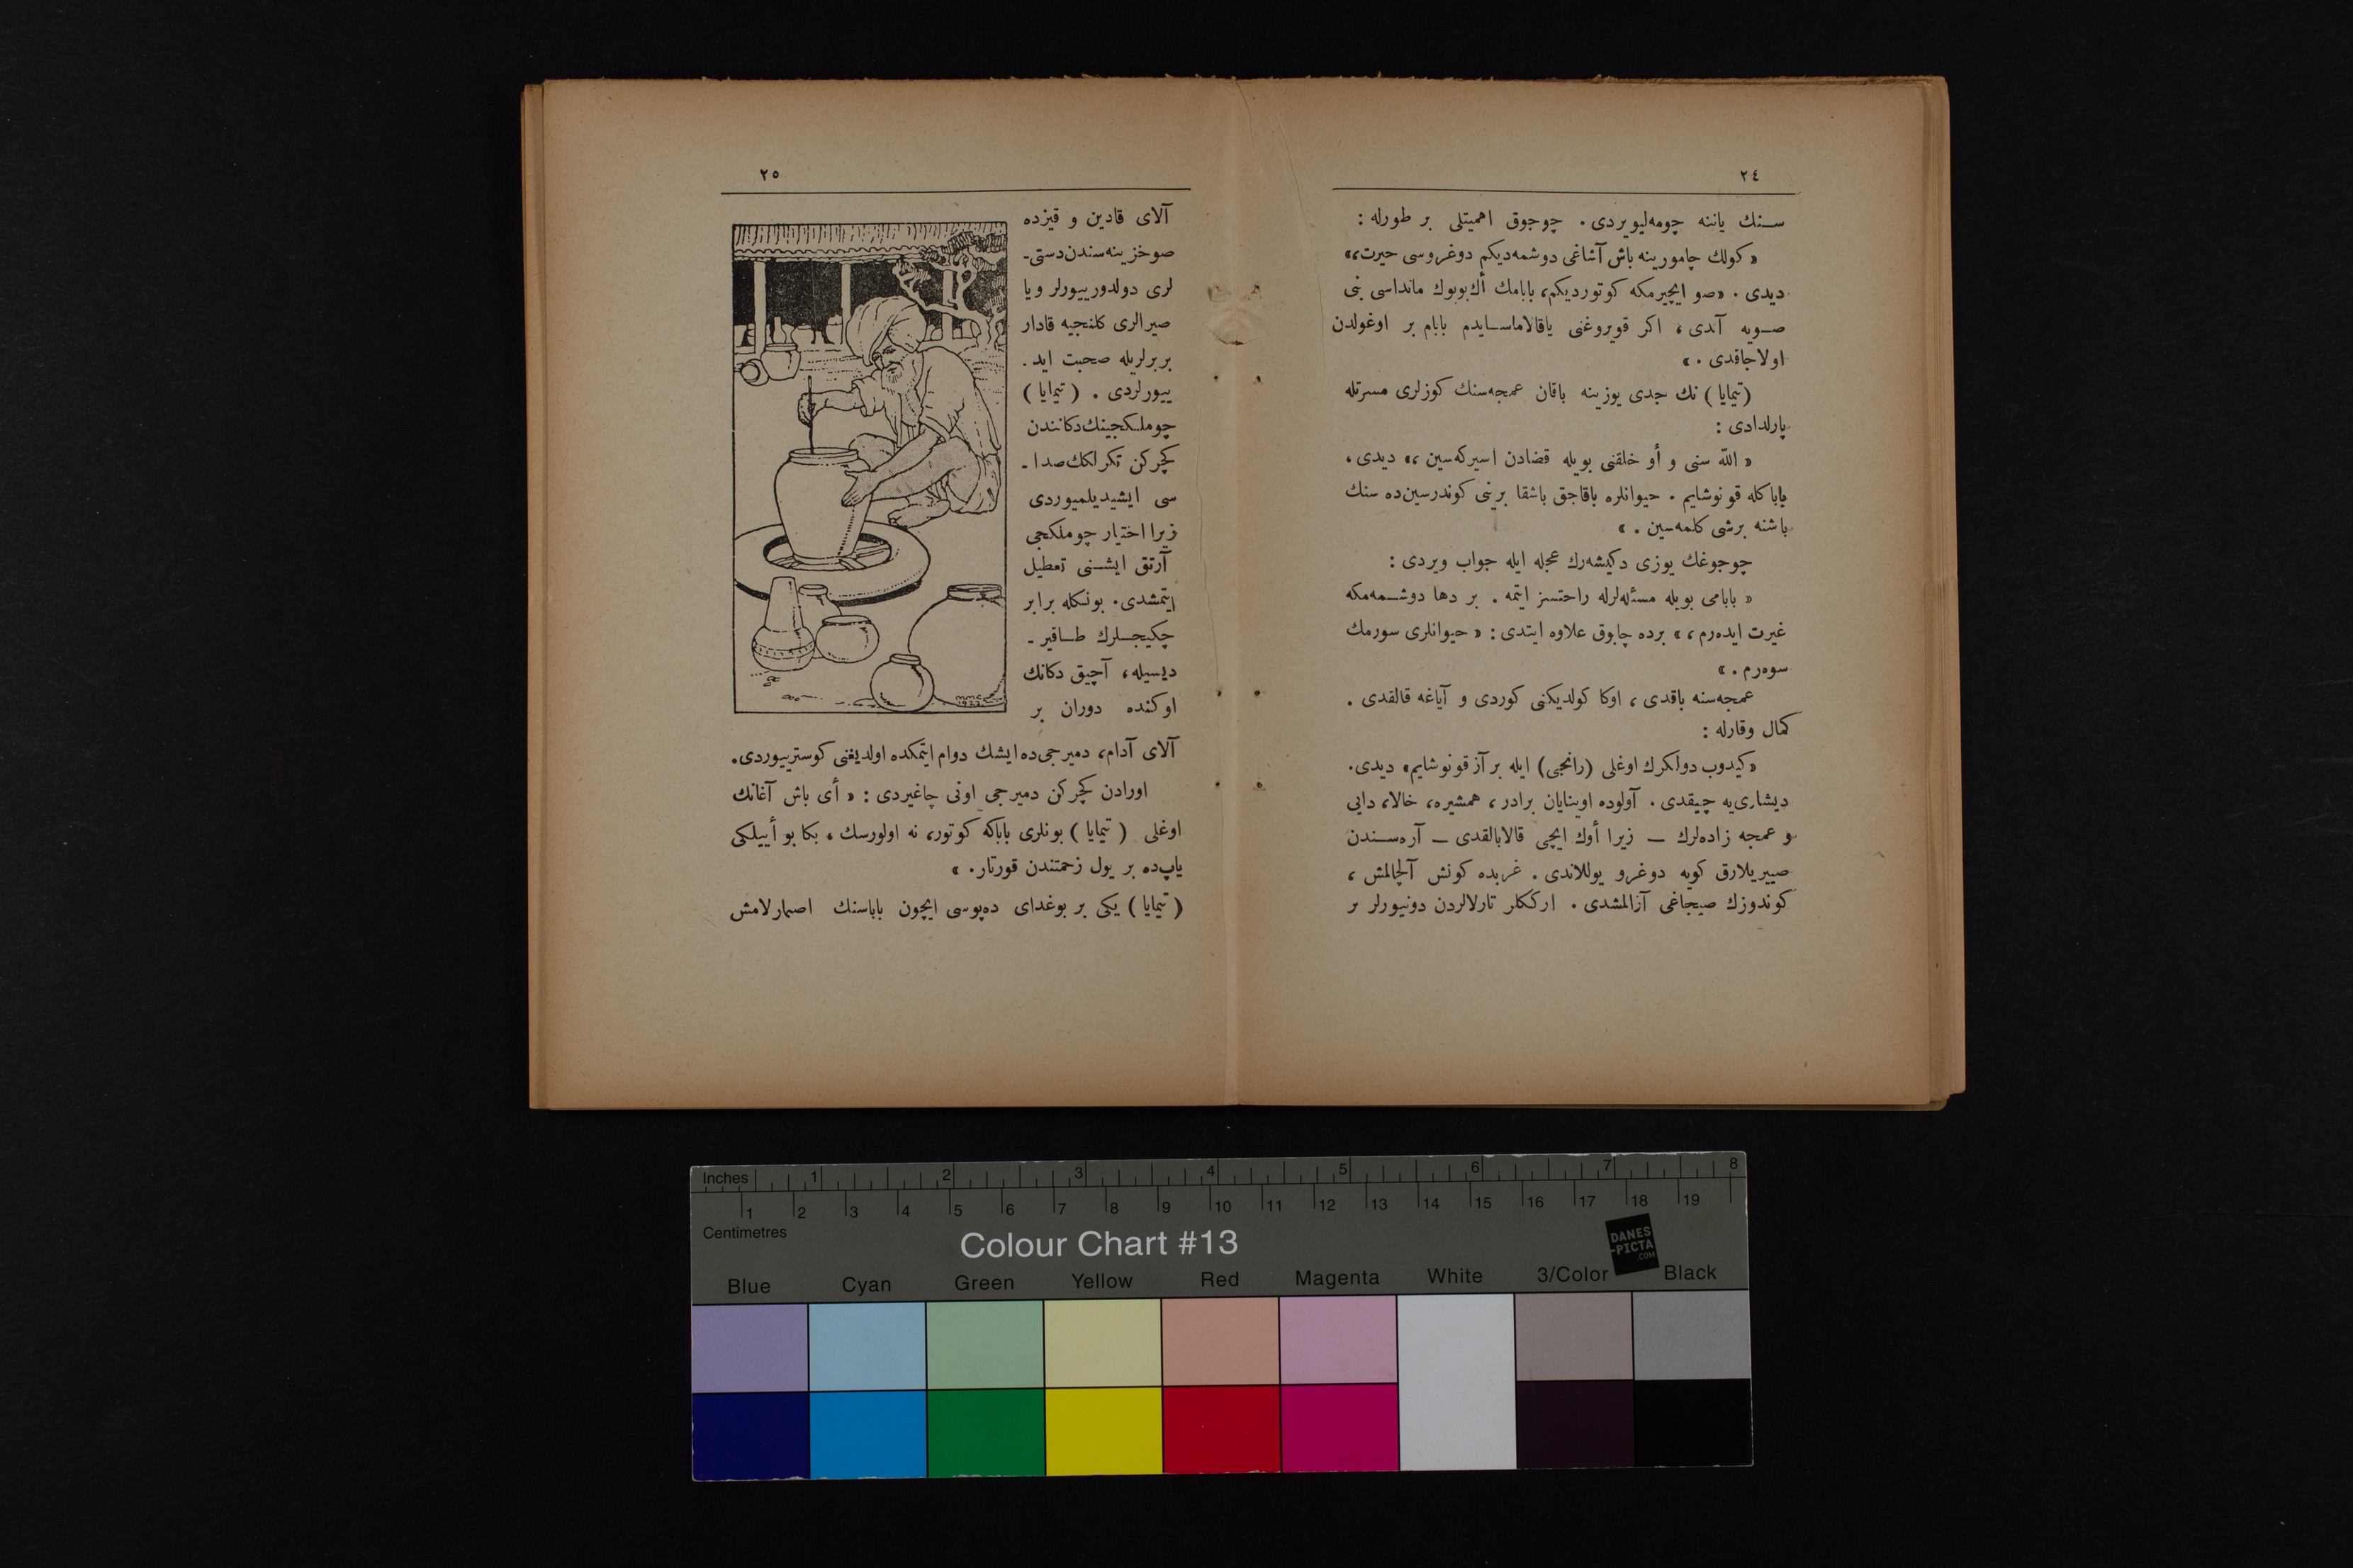 ٢٤
سنك ياننه چومه‌ليويردى . چوجوق اهميتلى بر طورله :
« كولك چامورينه باش آشاغى دوشمه‌ديكم دوغروسى حيرت،»
ديدى . «صو ايچيرمكه كوتورديكم، بابامك أك بويوك مانداسى بنى
صويه آندى ، اكر قويروغنى ياقالاماسايدم بابام بر اوغولدن
اولاجاقدى . »
(تيمايا) نك جدى يوزينه باقان عمجه‌سنك كوزلرى مسرتله
پارلدادى :
« الله سنى و أو خلقنى بويله قضادن اسيركه‌سين ،» ديدى ،
باباكله قونوشايم . حيوانلره باقاجق باشقا برينى كوندرسين‌ده سنك
باشنه برشى كلمه‌سين . »
چوجوغك يوزى دكيشه‌رك عجله ايله جواب ويردى :
« بابامى بويله مسئله‌لرله راحتسز ايتمه . بر دها دوشمه‌مكه
غيرت ايده‌رم ،» برده چابوق علاوه ايتدى : « حيوانلرى سورمك
سوه‌رم . »
عمجه‌سنه باقدى ، اوكا كولديكنى كوردى و آياغه قالقدى .
كمال وقارله :
«كيدوب دولكرك اوغلى (رانجى) ايله بر آز قونوشايم» ديدى.
ديشارى‌يه چيقدى . آولوده اوينايان برادر ، همشيره ، خالا ، دايى
و عمجه زاده‌لرك — زيرا أوك ايچى قالابالقدى — آره‌سندن
صييريلارق كويه دوغرو يوللاندى . غربده كونش آلچالمش ،
كوندوزك صيجاغى آزالمشدى . ارككلر تارلالردن دونيورلر بر
٢٥
آلاى قادين و قيزده
صوخزينه‌سندن دستى-
لرى دولدورييورلر ويا
صيرالرى كلنجيه قادار
بربرلريله صحبت ايد.
ييورلردى . (تيمايا)
چوملكجينك دكانندن
كچركن تكرلكك صدا-
سى ايشيديلميوردى
زيرا اختيار چوملكجى
آرتق ايشنى تعطيل
ايتمشدى. بونكله برابر
چكيجلرك طاقير-
ديسيله ، آچيق دكانك
اوكنده دوران بر
آلاى آدام، دميرجى‌ده ايشك دوام ايتمكده اولديغنى كوسترييوردى.
اورادن كچركن دميرجى اونى چاغيردى : « أى باش آغانك
اوغلى (تيمايا) بونلرى باباكه كوتور، نه اولورسك ، بكا بو أييلكى
ياپ‌ده بر يول زحمتندن قورتار. »
(تيمايا) يكى بر بوغداى ده‌پوسى ايچون باباسنك اصمارلامش
Inches 1 2 3 4 5 6 7 8
1 2 3 4 5 6 7 8 9 10 11 12 13 14 15 16 17 18 19
Centimetres
Colour Chart #13
DANES
-PICTA
.COM
Blue Cyan Green Yellow Red Magenta White 3/Color Black